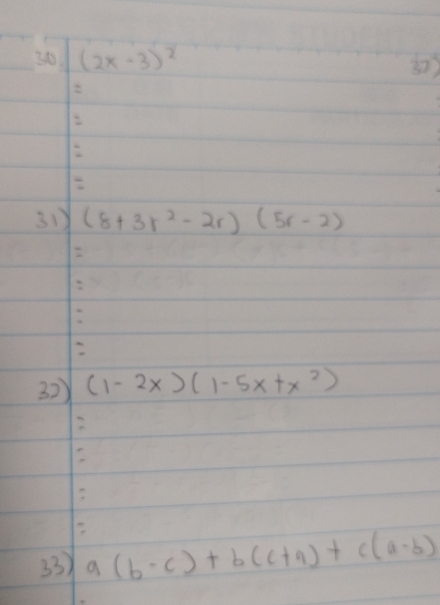 30. (2x - 3)²
37)
=
=
=
=
31) (8 + 3r² - 2r) (5r - 2)
=
=
=
=
32) (1 - 2x) (1 - 5x + x²)
=
=
=
=
33) a (b - c) + b (c + a) + c (a - b)
=